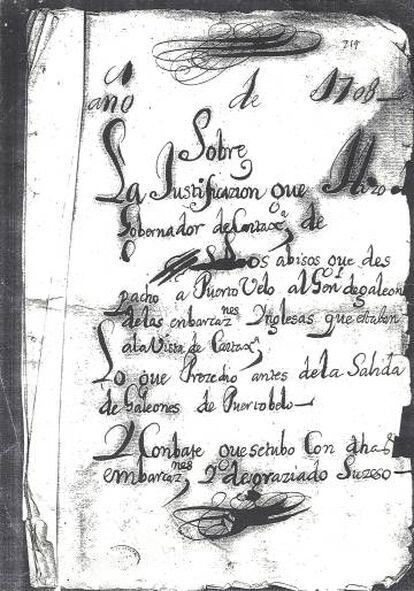 219
año de 1708
Sobre
La Justificazion que Hizo
Gobernador de Cartaxᵃ, de
los abisos que des
pacho a Puerto Velo al Genˡ de galeon
de las enbarcazⁿᵉˢ Inglesas que estaban
a la Vista de Cartaxᵃ,
Lo que Prozedio antes de la Salida
de Galeones de Puertobelo
Y Conbate que se tubo Con dhas
embarcazⁿᵉˢ, Y desgraziado Suzeso